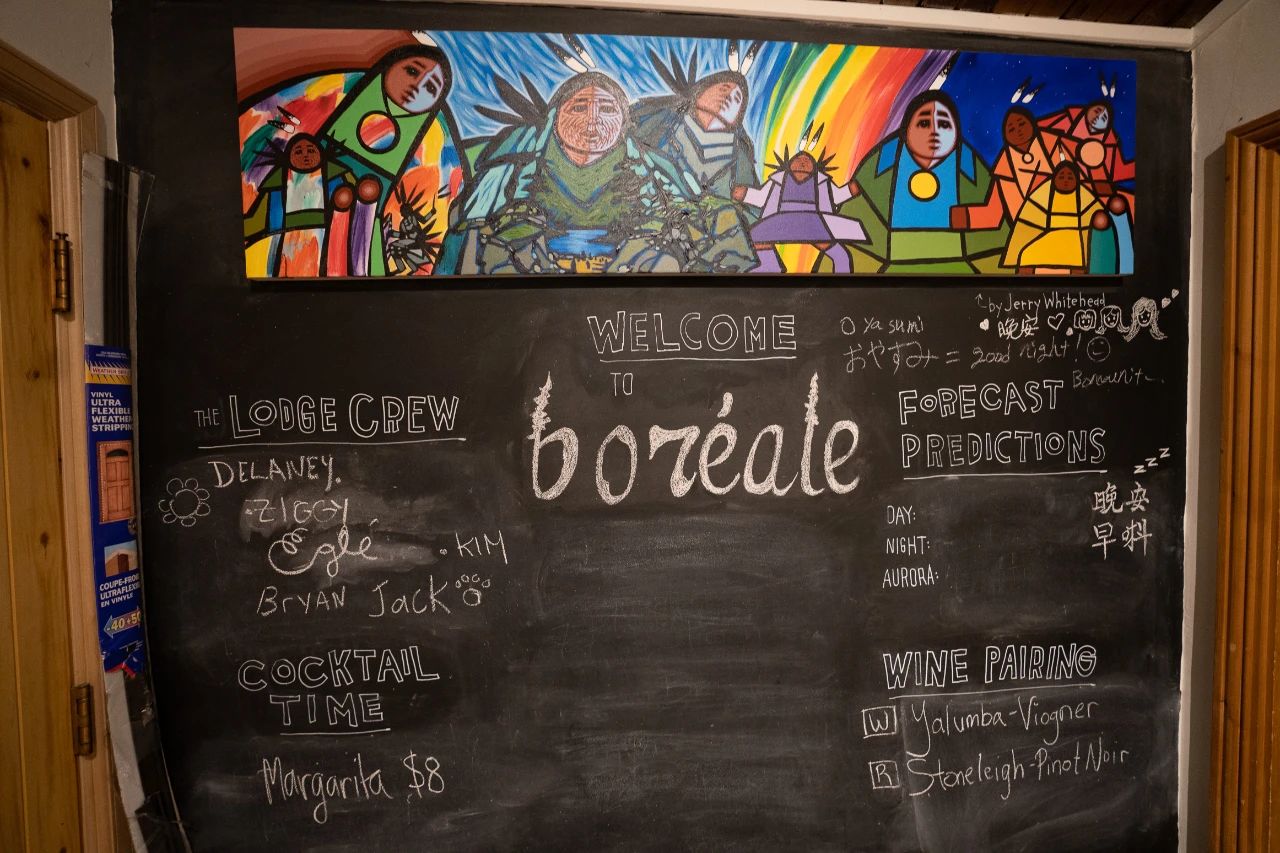 by Jerry Whitehead
晚安
WELCOME
TO
boréale
O ya sumi
おやすみ = good night!
THE LODGE CREW
DELANEY.
·ZIGGY
Eglé
·KIM
BRYAN Jack
COCKTAIL
TIME
Margarita $8
FORECAST
PREDICTIONS
zzz
晚安
早
DAY:
NIGHT:
AURORA:
WINE PAIRING
W Yalumba-Viogner
R Stoneleigh-Pinot Noir
VINYL
ULTRA
FLEXIBLE
WEATHER
STRIPPING
COUPE-FROID
ULTRAFLEXIBLE
EN VINYLE